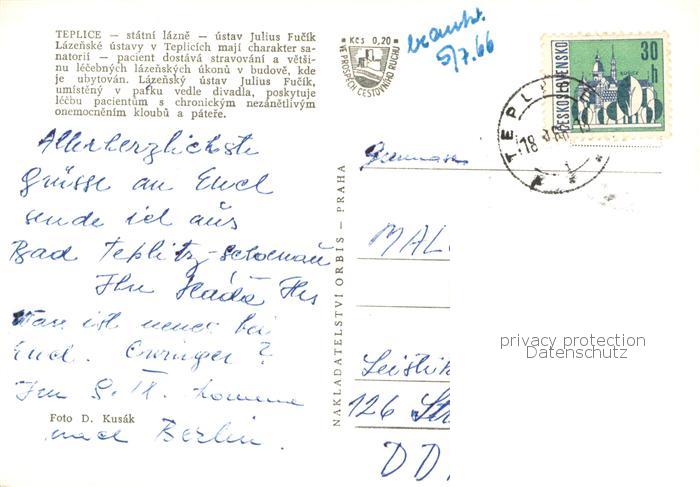 TEPLICE — státní lázně — ústav Julius Fučík
Lázeňské ústavy v Teplicích mají charakter sa-
natorií — pacient dostává stravování a větši-
nu léčebných lázeňských úkonů v budově, kde
je ubytován. Lázeňský ústav Julius Fučík,
umístěný v parku vedle divadla, poskytuje
léčbu pacientům s chronickým nezánětlivým
onemocněním kloubů a páteře.
Kčs 0,20
VE PROSPĚCH CESTOVNÍHO RUCHU
beantw.
5/7.66
ČESKOSLOVENSKO
30 h
TEPLI
18
Allerherzlichste
Grüsse an Euch
sende ich aus
Bad Teplitz-Schönau
Ihr
ist neues bei
Euch.
Im S. IX. komme
nach Berlin.
Foto D. Kusák
NAKLADATELSTVÍ ORBIS — PRAHA
MAL
Leistik
126 Str
DD
privacy protection
Datenschutz